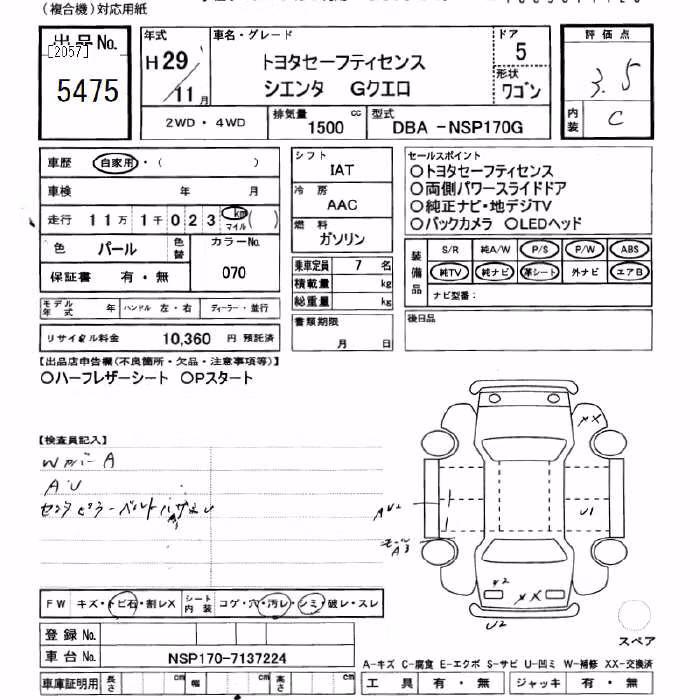 （複合機）対応用紙
出品No. [2057] 5475
年式 H29/11月
車名・グレード トヨタセーフティセンス
シエンタ Gクエロ
ドア 5
形状 ワゴン
評価点 3.5
内装 C
2WD・4WD
排気量 1500 cc
型式 DBA -NSP170G
車歴 自家用・( )
車検 年 月
走行 11万1千023 km マイル ( )
色 パール 色替 カラーNo. 070
保証書 有・無
モデル年式 年 ハンドル 左・右 ディーラー・並行
リサイクル料金 10,360 円 預託済
シフト IAT
冷房 AAC
燃料 ガソリン
乗車定員 7 名
積載量 kg
総重量 kg
書類期限 月 日
セールスポイント
○トヨタセーフティセンス
○両側パワースライドドア
○純正ナビ・地デジTV
○バックカメラ ○LEDヘッド
装備品 S/R 純A/W P/S P/W ABS
純TV 純ナビ 革シート 外ナビ エアB
ナビ型番：
後日品
【出品店申告欄(不良箇所・欠品・注意事項等)】
○ハーフレザーシート ○Pスタート
【検査員記入】
A U
センタピラーベルト
XX
AU2
U1
A3
U2
XX
U2
FW キズ・トビ石・割レX シート内装 コゲ・穴・汚レ・シミ・破レ・スレ
スペア
登録No.
車台No. NSP170-7137224
A-キズ C-腐食 E-エクボ S-サビ U-凹ミ W-補修 XX-交換済
車庫証明用 長さ cm 幅 cm 高さ cm
工具 有・無 ジャッキ 有・無